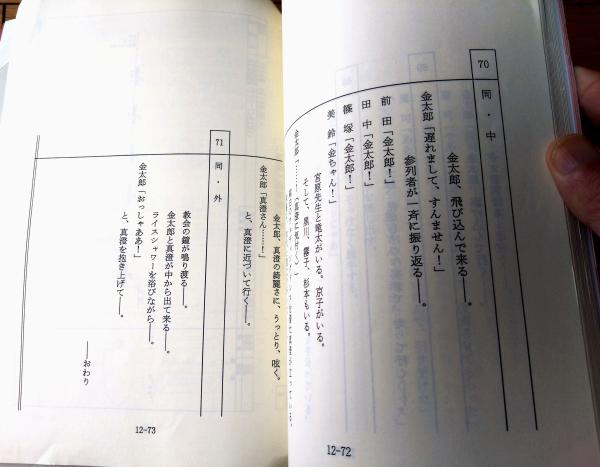 70
同・中
金太郎、飛び込んで来る――。
金太郎「遅れまして、すんません！」
参列者が一斉に振り返る――。
前田「金太郎！」
田中「金太郎！」
篠塚「金太郎！」
美鈴「金ちゃん！」
宮原先生と竜太がいる。京子がいる。
そして、黒川、霧子、杉本もいる。
金太郎「……！（真澄に気付く）」
金太郎、真澄の綺麗さに、うっとり、呟く。
金太郎「真澄さん……！」
と、真澄に近づいて行く――。
71
同・外
教会の鐘が鳴り渡る――。
金太郎と真澄が中から出て来る――。
ライスシャワーを浴びながら――。
金太郎「おっしゃああ！」
と、真澄を抱き上げて――。
――おわり
12-72
12-73